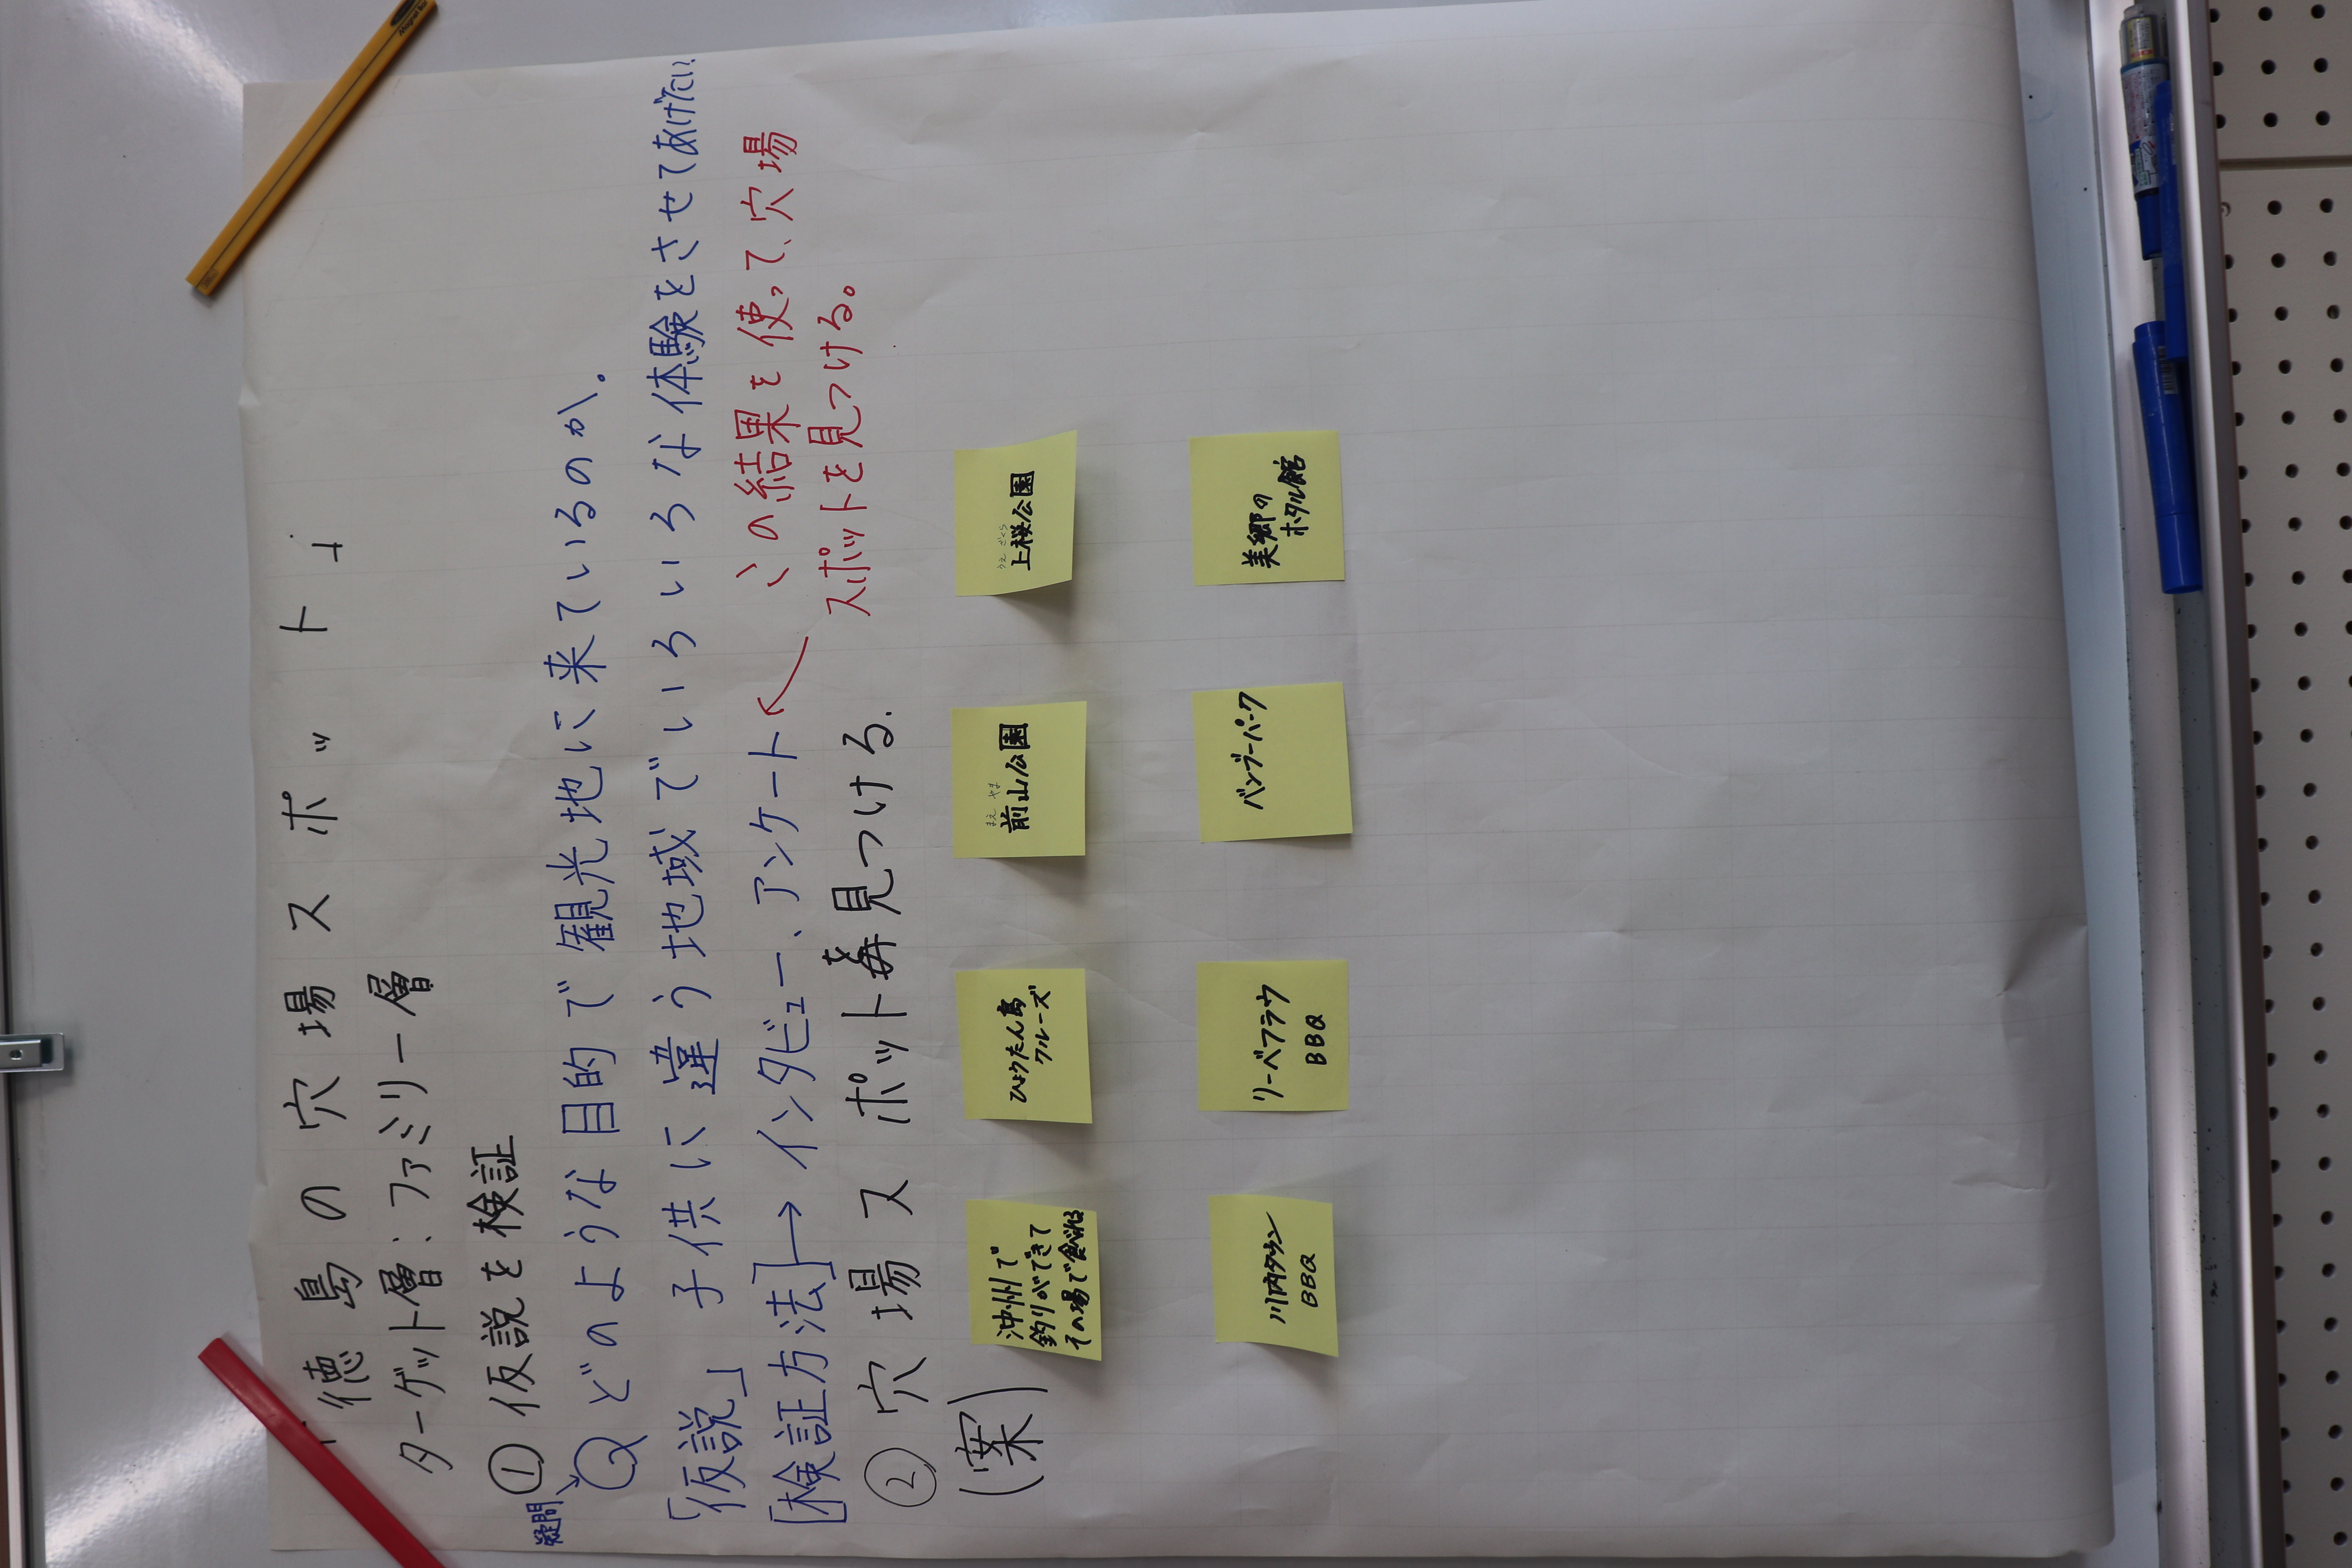 「徳島の穴場スポット」
ターゲット層：ファミリー層
① 仮説を検証
疑問
Qどのような目的で観光地に来ているのか。
「仮説」子供に違う地域でいろいろな体験をさせてあげたい
[検証方法]→インタビュー、アンケート
この結果を使って、穴場
スポットを見つける。
② 穴場スポットを見つける.
(案)
沖州で
釣りができて
その場で食べれる
ひょうたん島
クルーズ
まえ やま
前山公園
うえ ざくら
上桜公園
川内タウン
BBQ
リーベフラウ
BBQ
バンブーパーク
美郷の
ホタル館